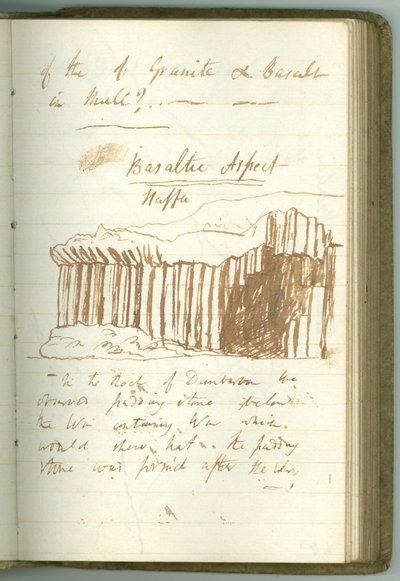 of the of Granite & Basalt
in Mull?, . . — —
Basaltic Aspect
Staffa
— In the Rock of Dumbarton we
observed pudding stone below
the Wn containing Wn which
would shew that . the pudding
stone was formed after the Wn